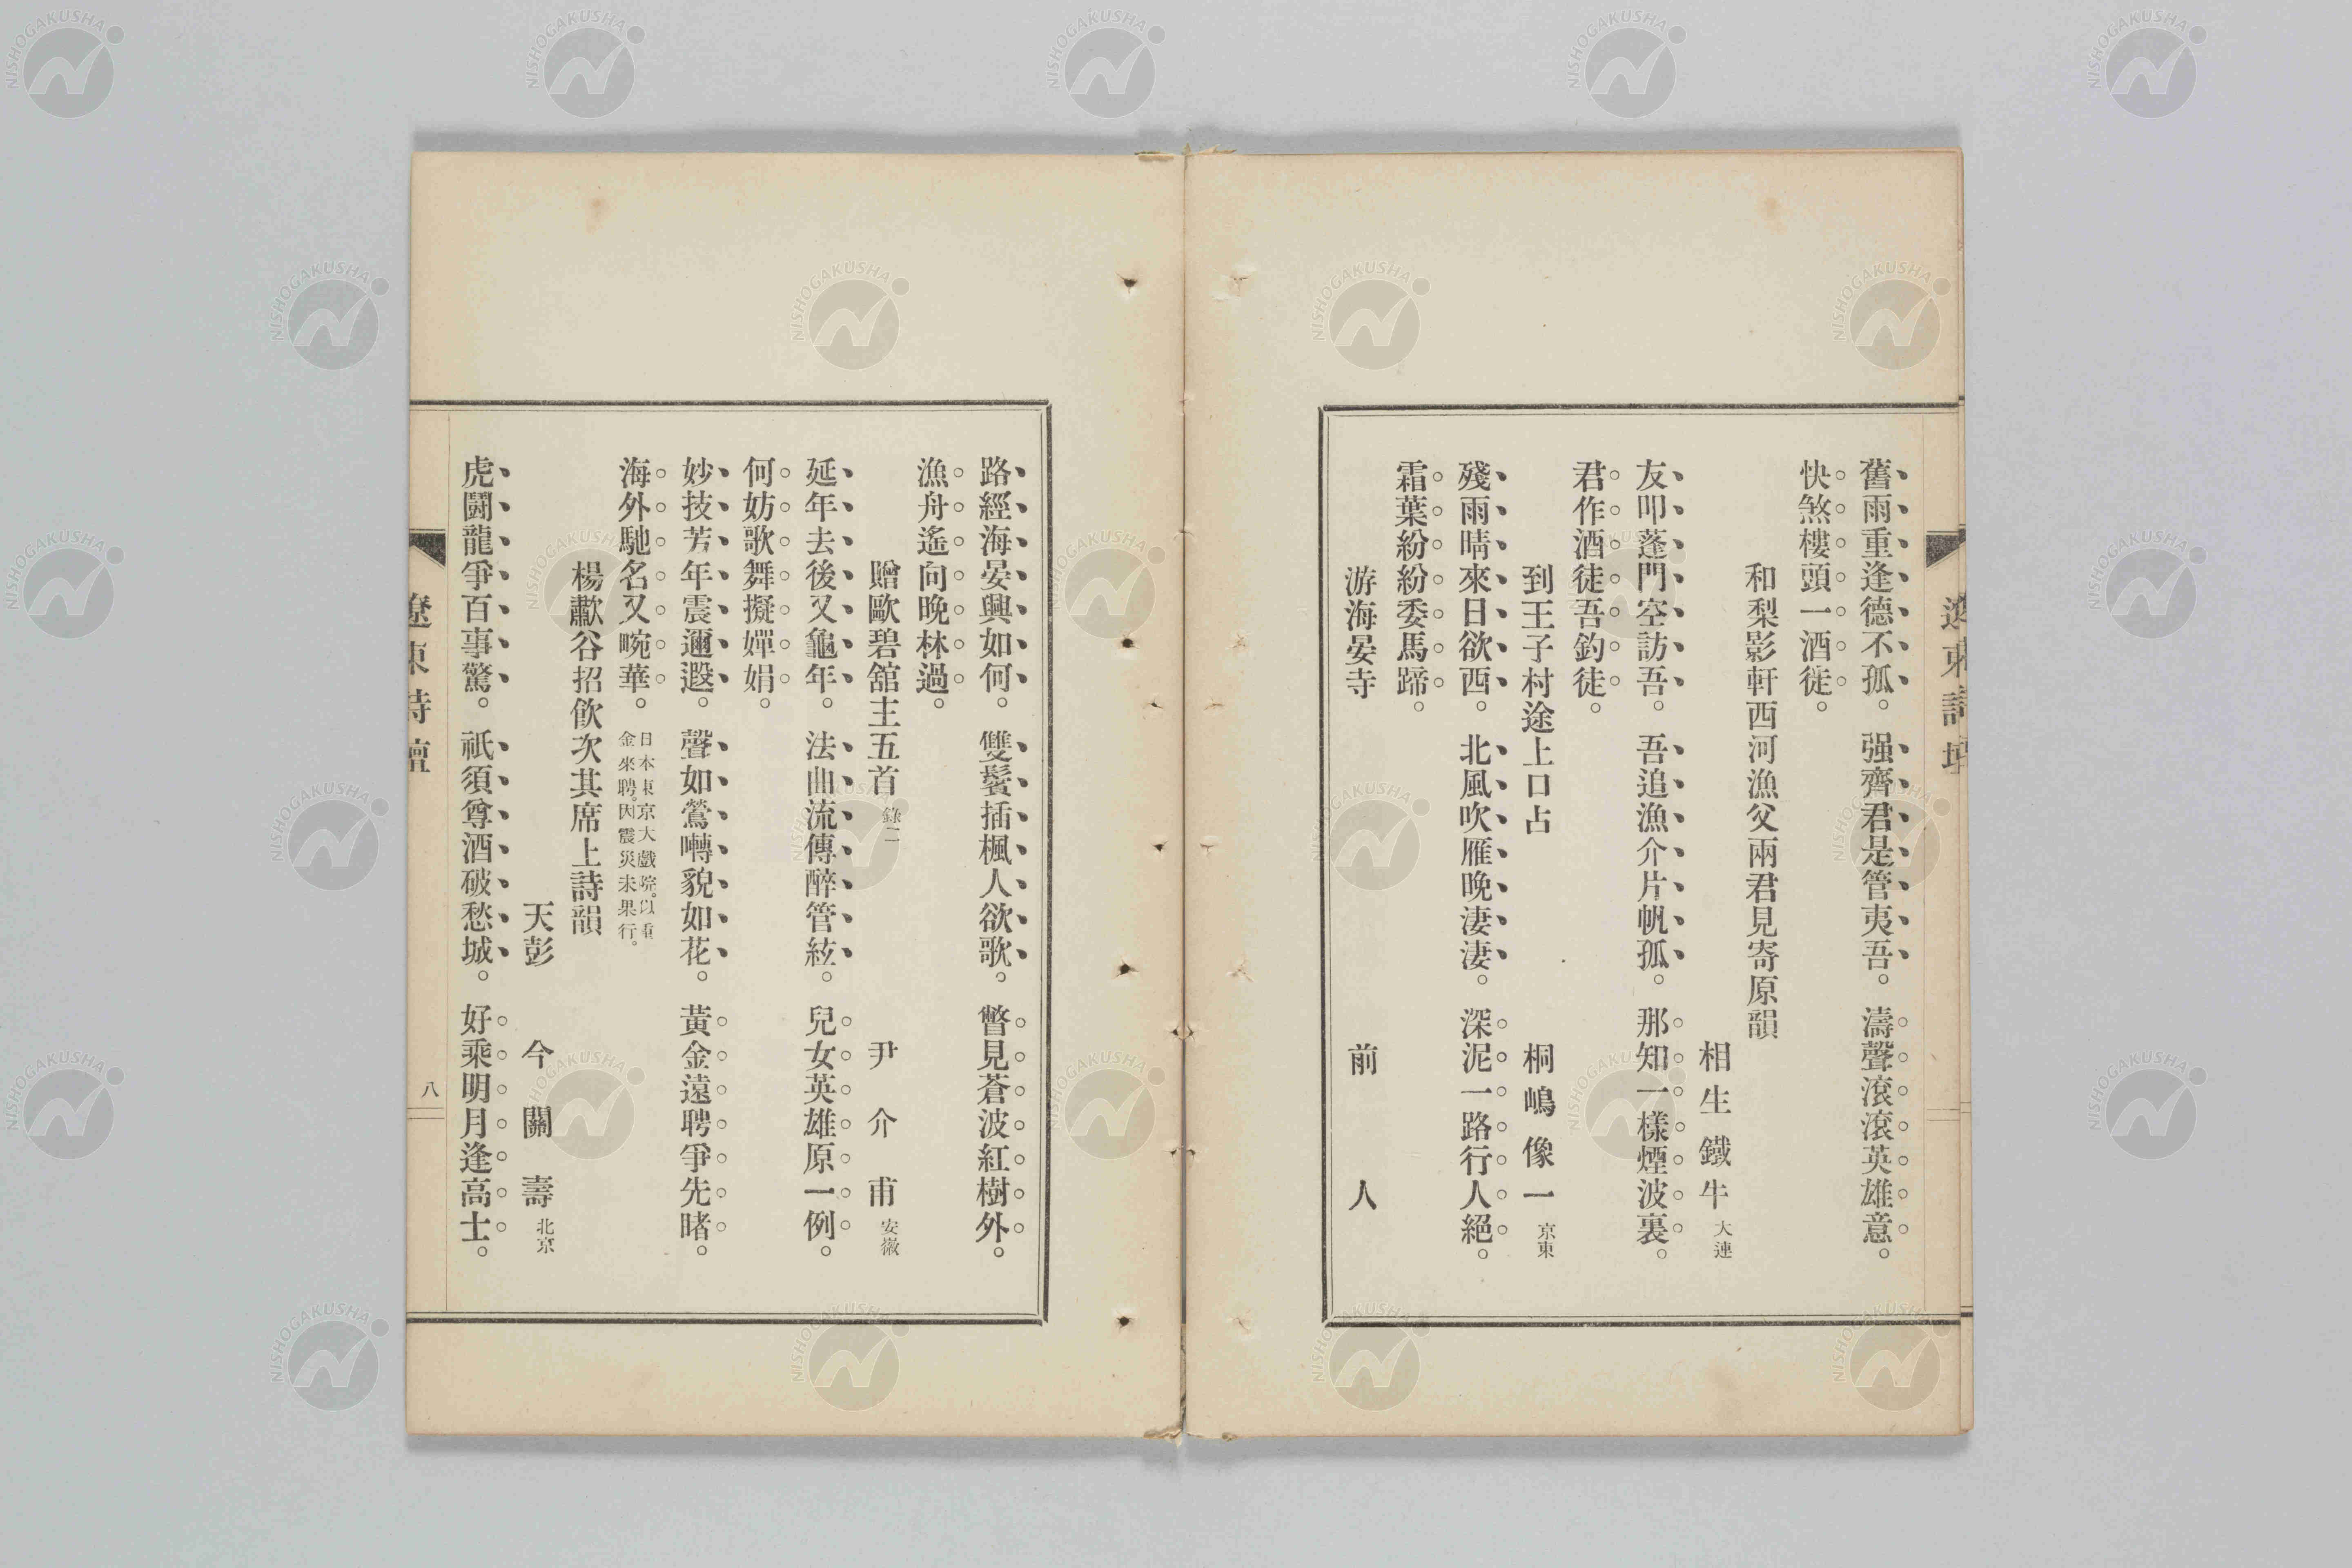 舊雨重逢德不孤。强齊君是管夷吾。濤聲滾滾英雄意。
快煞樓頭一酒徒。
和梨影軒西河漁父兩君見寄原韻
相生鐵牛 大連
友叩蓬門空訪吾。吾追漁介片帆孤。那知一樣煙波裏。
君作酒徒吾釣徒。
到王子村途上口占
桐嶋像一 京東
殘雨晴來日欲西。北風吹雁晩淒淒。深泥一路行人絕。
霜葉紛紛委馬蹄。
游海晏寺 前人
路經海晏興如何。雙鬢插楓人欲歌。瞥見蒼波紅樹外。
漁舟遙向晩林過。
贈歐碧舘主五首 錄二 尹介甫 安徽
延年去後又龜年。法曲流傳醉管絃。兒女英雄原一例。
何妨歌舞擬嬋娟。
妙技芳年震邇遐。聲如鶯囀貌如花。黃金遠聘爭先睹。
海外馳名又畹華。日本東京大戲院。以重
金來聘。因震災未果行。
楊歗谷招飮次其席上詩韻
天彭 今關壽 北京
虎鬪龍爭百事驚。祇須尊酒破愁城。好乘明月逢高士。
遼東詩壇
八
NISHOGAKUSHA